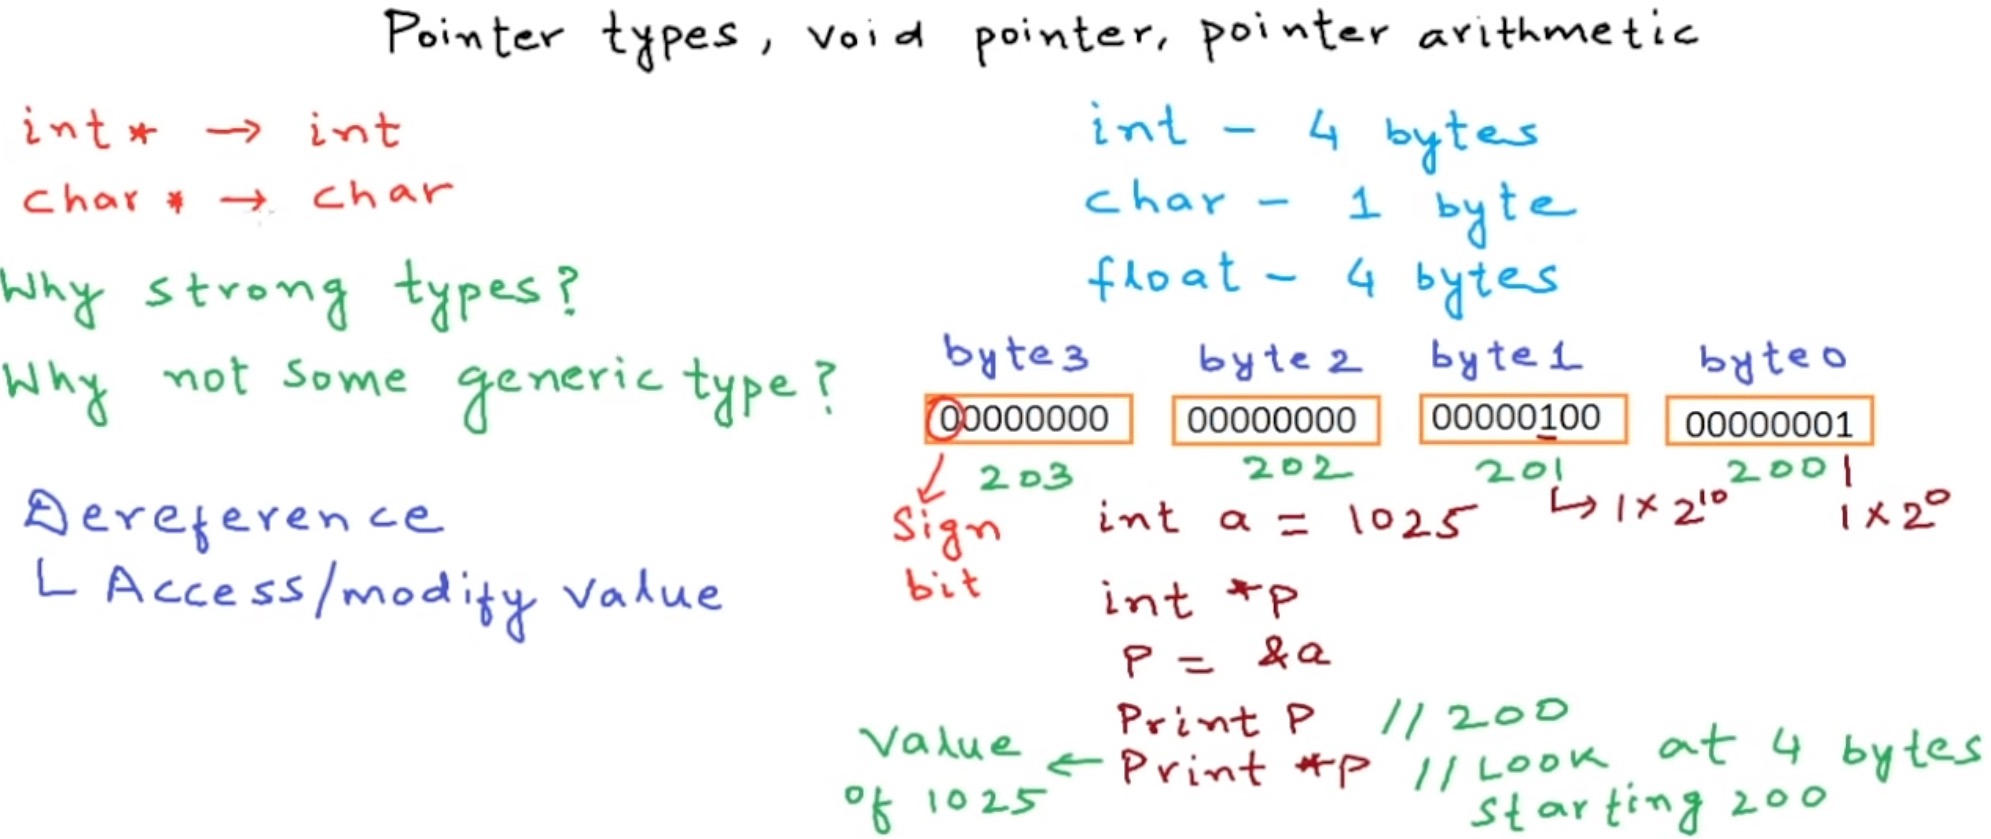 Pointer types, void pointer, pointer arithmetic
int* → int
char* → char
Why strong types?
Why not some generic type?
Dereference
Access/modify value
int - 4 bytes
char - 1 byte
float - 4 bytes
byte3 byte2 byte1 byte0
00000000 00000000 00000100 00000001
203 202 201 200
sign
bit
int a = 1025 ↳ 1x2^10 1x2^0
int *p
P = &a
Print P // 200
Print *p // Look at 4 bytes
starting 200
Value
of 1025 ←